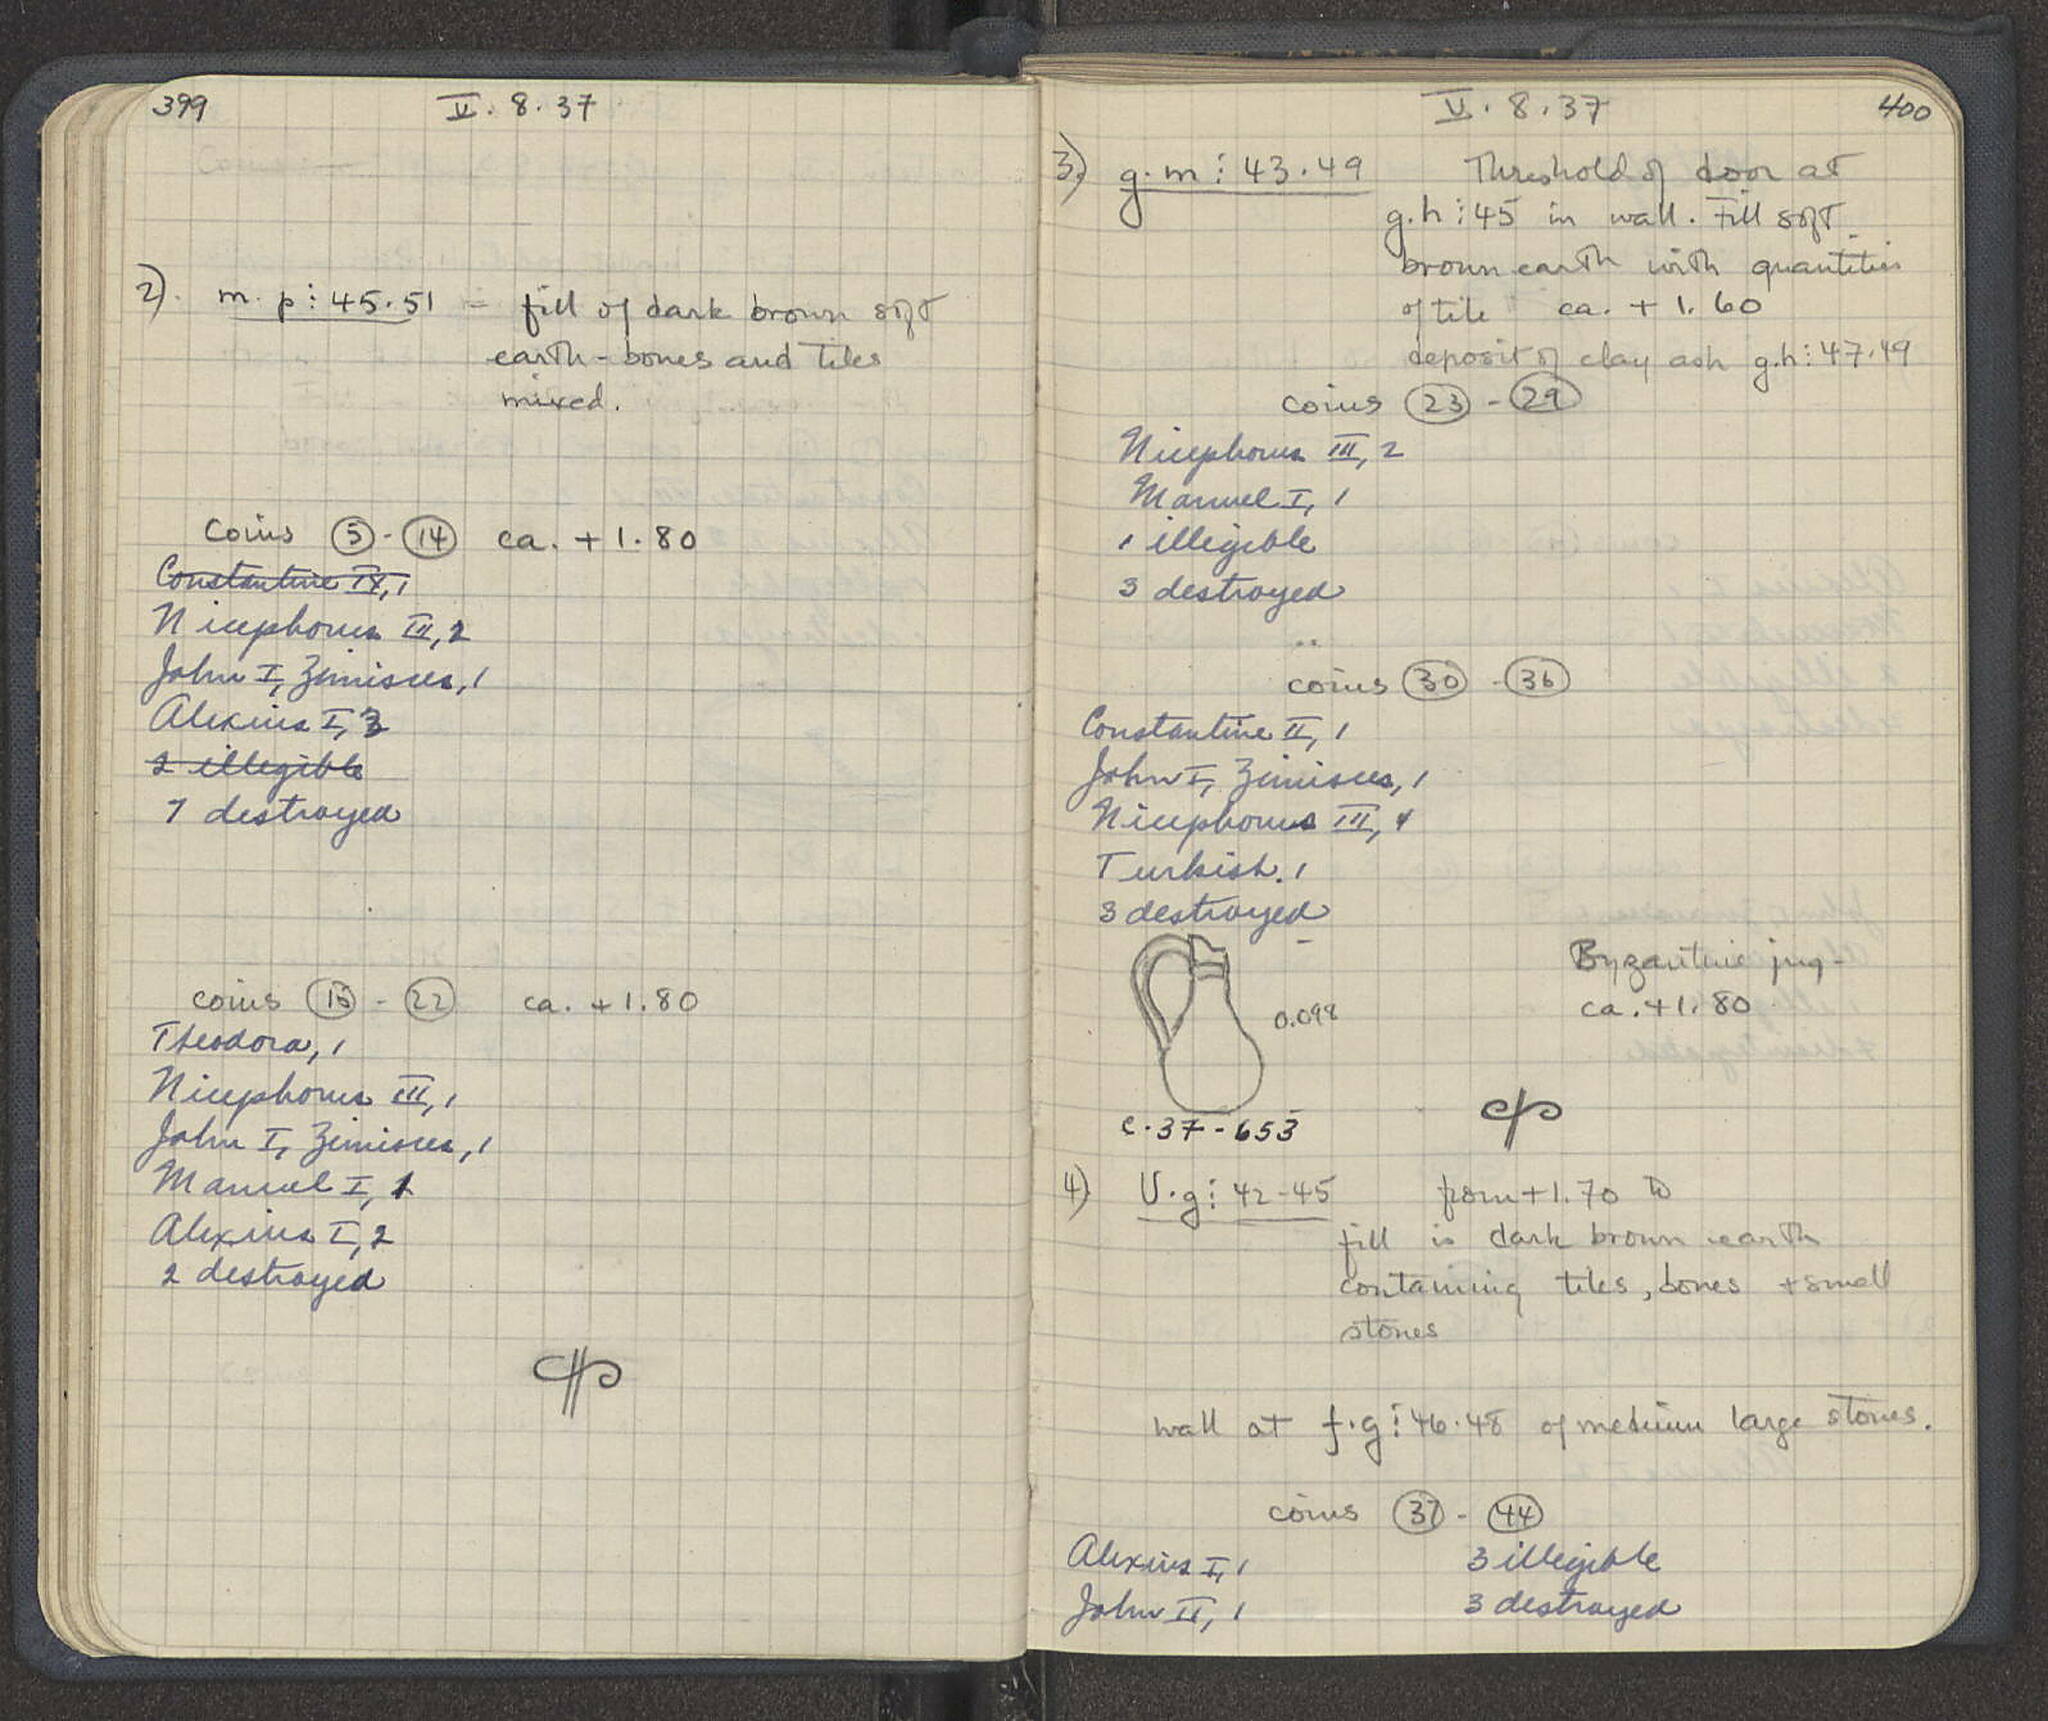 399
V. 8. 37
2) m. p ⋮ 45.51 = fill of dark brown soft
earth - bones and tiles
mixed.
Coins (5) - (14) ca. + 1.80
Constantine IX, 1
Nicephorus III, 2
John I, Zimisces, 1
Alexius I, 3
2 illegible
destroyed
coins (15) - (22) ca. + 1.80
Theodora, 1
Nicephorus III, 1
John I, Zimisces, 1
Manuel I, 1
Alexius I, 2
2 destroyed
V. 8. 37
400
3) g. m ⋮ 43.49 Threshold of door at
g.h ⋮ 45 in wall. Fill soft
brown earth with quantities
of tile ca. + 1.60
deposit of clay ash g.h ⋮ 47.49
coins (23) - (29)
Nicephorus III, 2
Manuel I, 1
1 illegible
3 destroyed
coins (30) - (36)
Constantine II, 1
John I, Zimisces, 1
Nicephorus III,
Turkish. 1
3 destroyed
Byzantine jug -
ca. +1.80
0.098
c. 37 - 653
4) U.g ⋮ 42-45 from +1.70 to
fill is dark brown earth
containing tiles, bones + small
stones
wall at f.g ⋮ 46.48 of medium large stones.
coins (37) - (44)
Alexius I, 1 3 illegible
John II, 1 3 destroyed